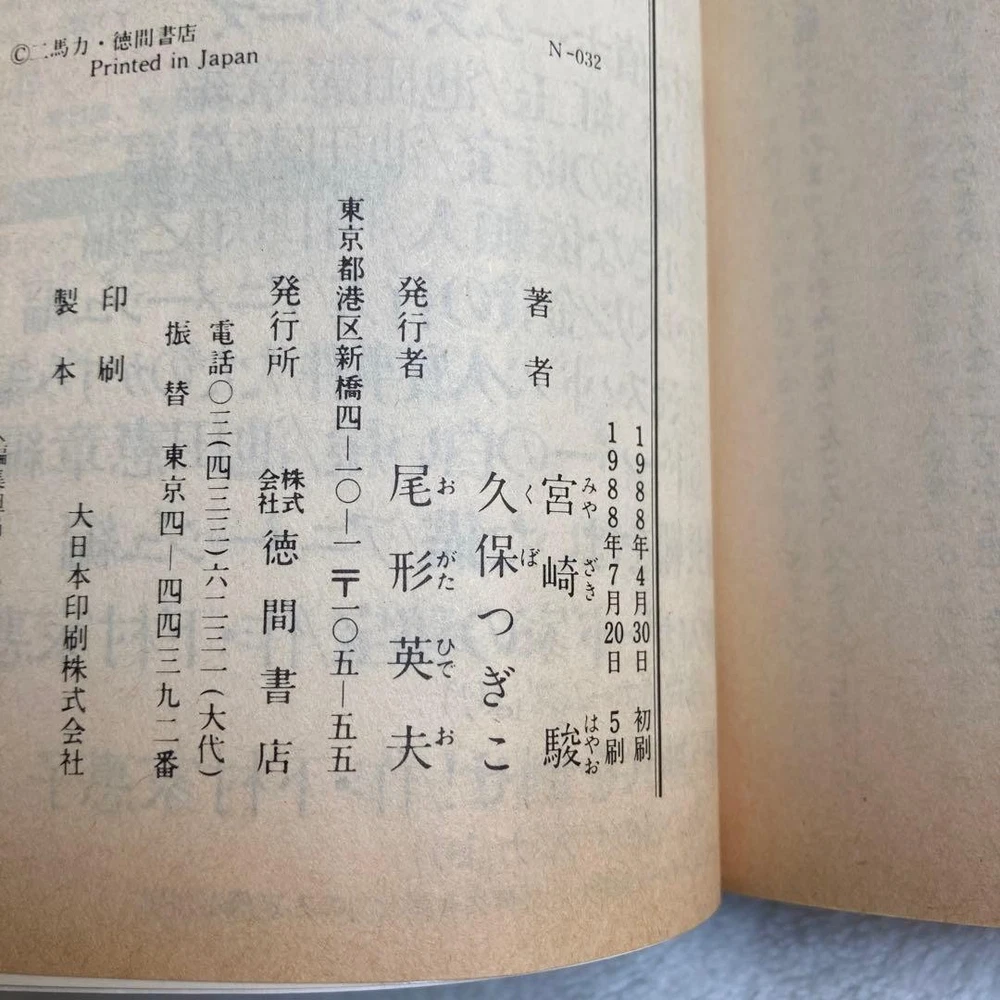 1988年4月30日 初刷
1988年7月20日 5刷
著者 宮崎駿
みや ざき はやお
久保つぎこ
く ぼ
発行者 尾形英夫
お がた ひで お
東京都港区新橋四―一〇―一 〒一〇五―五五
発行所 株式会社 徳間書店
電話〇三(四三三)六二三一(大代)
振替 東京四―四四三九二番
印刷
製本 大日本印刷株式会社
©二馬力・徳間書店
Printed in Japan
N-032